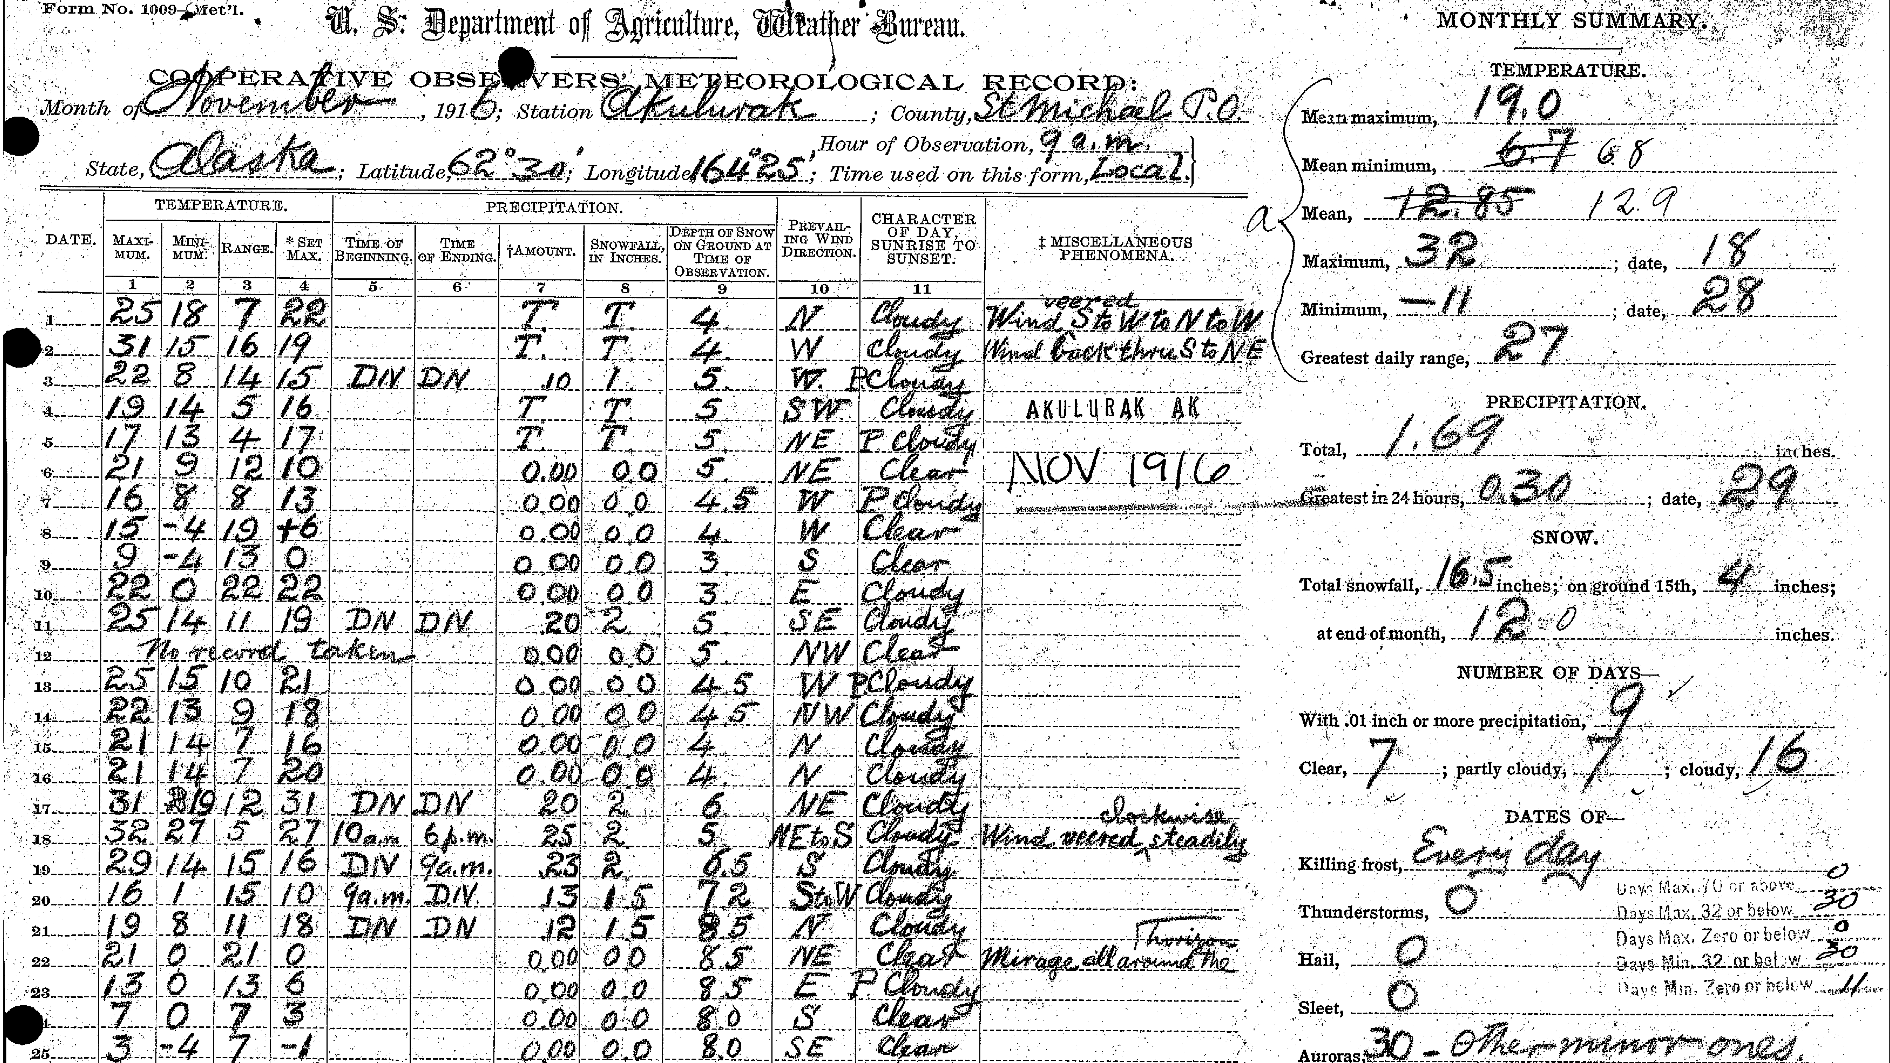 Form No. 1009—Met'l.
U. S. Department of Agriculture, Weather Bureau.
COOPERATIVE OBSERVERS' METEOROLOGICAL RECORD:
Month of November, 1916; Station Akulurak; County, St Michael P.O.
Hour of Observation, 9 a.m.
State, Alaska; Latitude, 62°30'; Longitude 164°25'; Time used on this form, Local.
TEMPERATURE. PRECIPITATION.
DATE. MAXIMUM. MINIMUM. RANGE. *SET MAX. TIME OF BEGINNING. TIME OF ENDING. †AMOUNT. SNOWFALL, IN INCHES. DEPTH OF SNOW ON GROUND AT TIME OF OBSERVATION. PREVAILING WIND DIRECTION. CHARACTER OF DAY, SUNRISE TO SUNSET. ‡ MISCELLANEOUS PHENOMENA.
1 2 3 4 5 6 7 8 9 10 11
1 25 18 7 22 T. T. 4 N Cloudy Wind veered S to W to N to W
2 31 15 16 19 T. T. 4 W Cloudy Wind back thru S to NE
3 22 8 14 15 DN DN .10 1 5 W. P Cloudy
4 19 14 5 16 T. T. 5 SW Cloudy AKULURAK AK
5 17 13 4 17 T. T. 5 NE P Cloudy
6 21 9 12 10 0.00 0.0 5 NE Clear NOV 1916
7 16 8 8 13 0.00 0.0 4.5 W P Cloudy
8 15 -4 19 +6 0.00 0.0 4 W Clear
9 9 -4 13 0 0.00 0.0 3 S Clear
10 22 0 22 22 0.00 0.0 3 E Cloudy
11 25 14 11 19 DN DN .20 2 5 SE Cloudy
12 No record taken 0.00 0.0 5 NW Clear
13 25 15 10 21 0.00 0.0 4.5 W P Cloudy
14 22 13 9 18 0.00 0.0 4.5 NW Cloudy
15 21 14 7 16 0.00 0.0 4 N Cloudy
16 21 14 7 20 0.00 0.0 4 N Cloudy
17 31 19 12 31 DN DN 20 2 6 NE Cloudy
18 32 27 5 27 10 a.m. 6 p.m. 25 2 5 NE to S Cloudy Wind veered clockwise steadily
19 29 14 15 16 DN 9 a.m. .23 2 6.5 S Cloudy
20 16 1 15 10 9 a.m. DN. 13 1.5 7.2 S to W Cloudy
21 19 8 11 18 DN DN .12 1.5 8.5 N Cloudy
22 21 0 21 0 0.00 0.0 8.5 NE Clear Mirage all around the horizon
23 13 0 13 6 0.00 0.0 8.5 E P Cloudy
7 0 7 3 0.00 0.0 8.0 S Clear
25 3 -4 7 -1 0.00 0.0 8.0 SE Clear
MONTHLY SUMMARY.
TEMPERATURE.
Mean maximum, 19.0
Mean minimum, 6.7 6.8
a Mean, 12.85 12.9
Maximum, 32; date, 18
Minimum, -11; date, 28
Greatest daily range, 27
PRECIPITATION.
Total, 1.69 inches.
Greatest in 24 hours, 0.30; date, 29
SNOW.
Total snowfall, 16.5 inches; on ground 15th, 4 inches;
at end of month, 12.0 inches.
NUMBER OF DAYS—
With .01 inch or more precipitation, 9
Clear, 7; partly cloudy, 7; cloudy, 16
DATES OF—
Killing frost, Every day
Days Max. 70 or above 0
Thunderstorms, 0
Days Max. 32 or below 30
Days Max. Zero or below 0
Hail, 0
Days Min. 32 or below 30
Days Min. Zero or below 11
Sleet, 0
Auroras, 30 - Other minor ones.